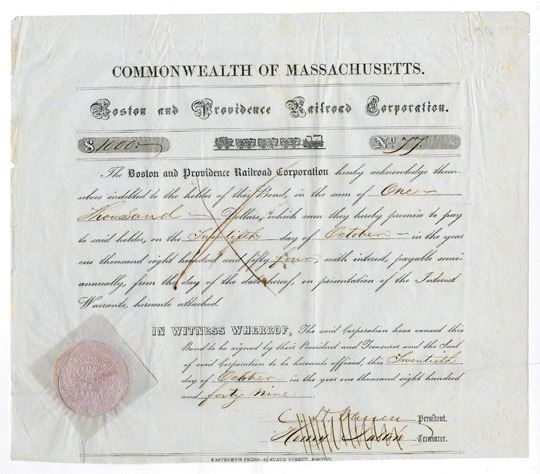 COMMONWEALTH OF MASSACHUSETTS.
Boston and Providence Railroad Corporation.
$ 1000 No. 77
The Boston and Providence Railroad Corporation hereby acknowledge them-
selves indebted to the holder of this Bond, in the sum of One
Thousand Dollars, which sum they hereby promise to pay
to said holder, on the Twentieth day of October in the year
one thousand eight hundred and fifty four, with interest, payable semi-
annually, from the day of the date hereof, on presentation of the Interest
Warrants, hereunto attached.
IN WITNESS WHEREOF, The said Corporation have caused this
Bond to be signed by their President and Treasurer and the Seal
of said Corporation to be hereunto affixed, this Twentieth
day of October in the year one thousand eight hundred
and forty nine.
President.
Treasurer.
EASTBURN'S PRESS—18 STATE STREET, BOSTON.